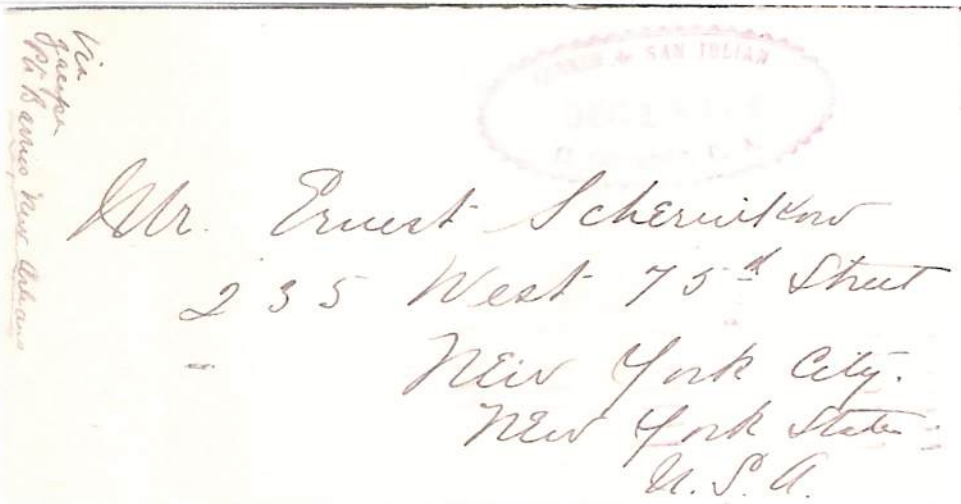 Via
Pto Barrios New Orleans
SAN JULIAN
DEC
Mr. Ernest Schernikow
235 West 75d Street
New York City.
New York State
U.S.A.